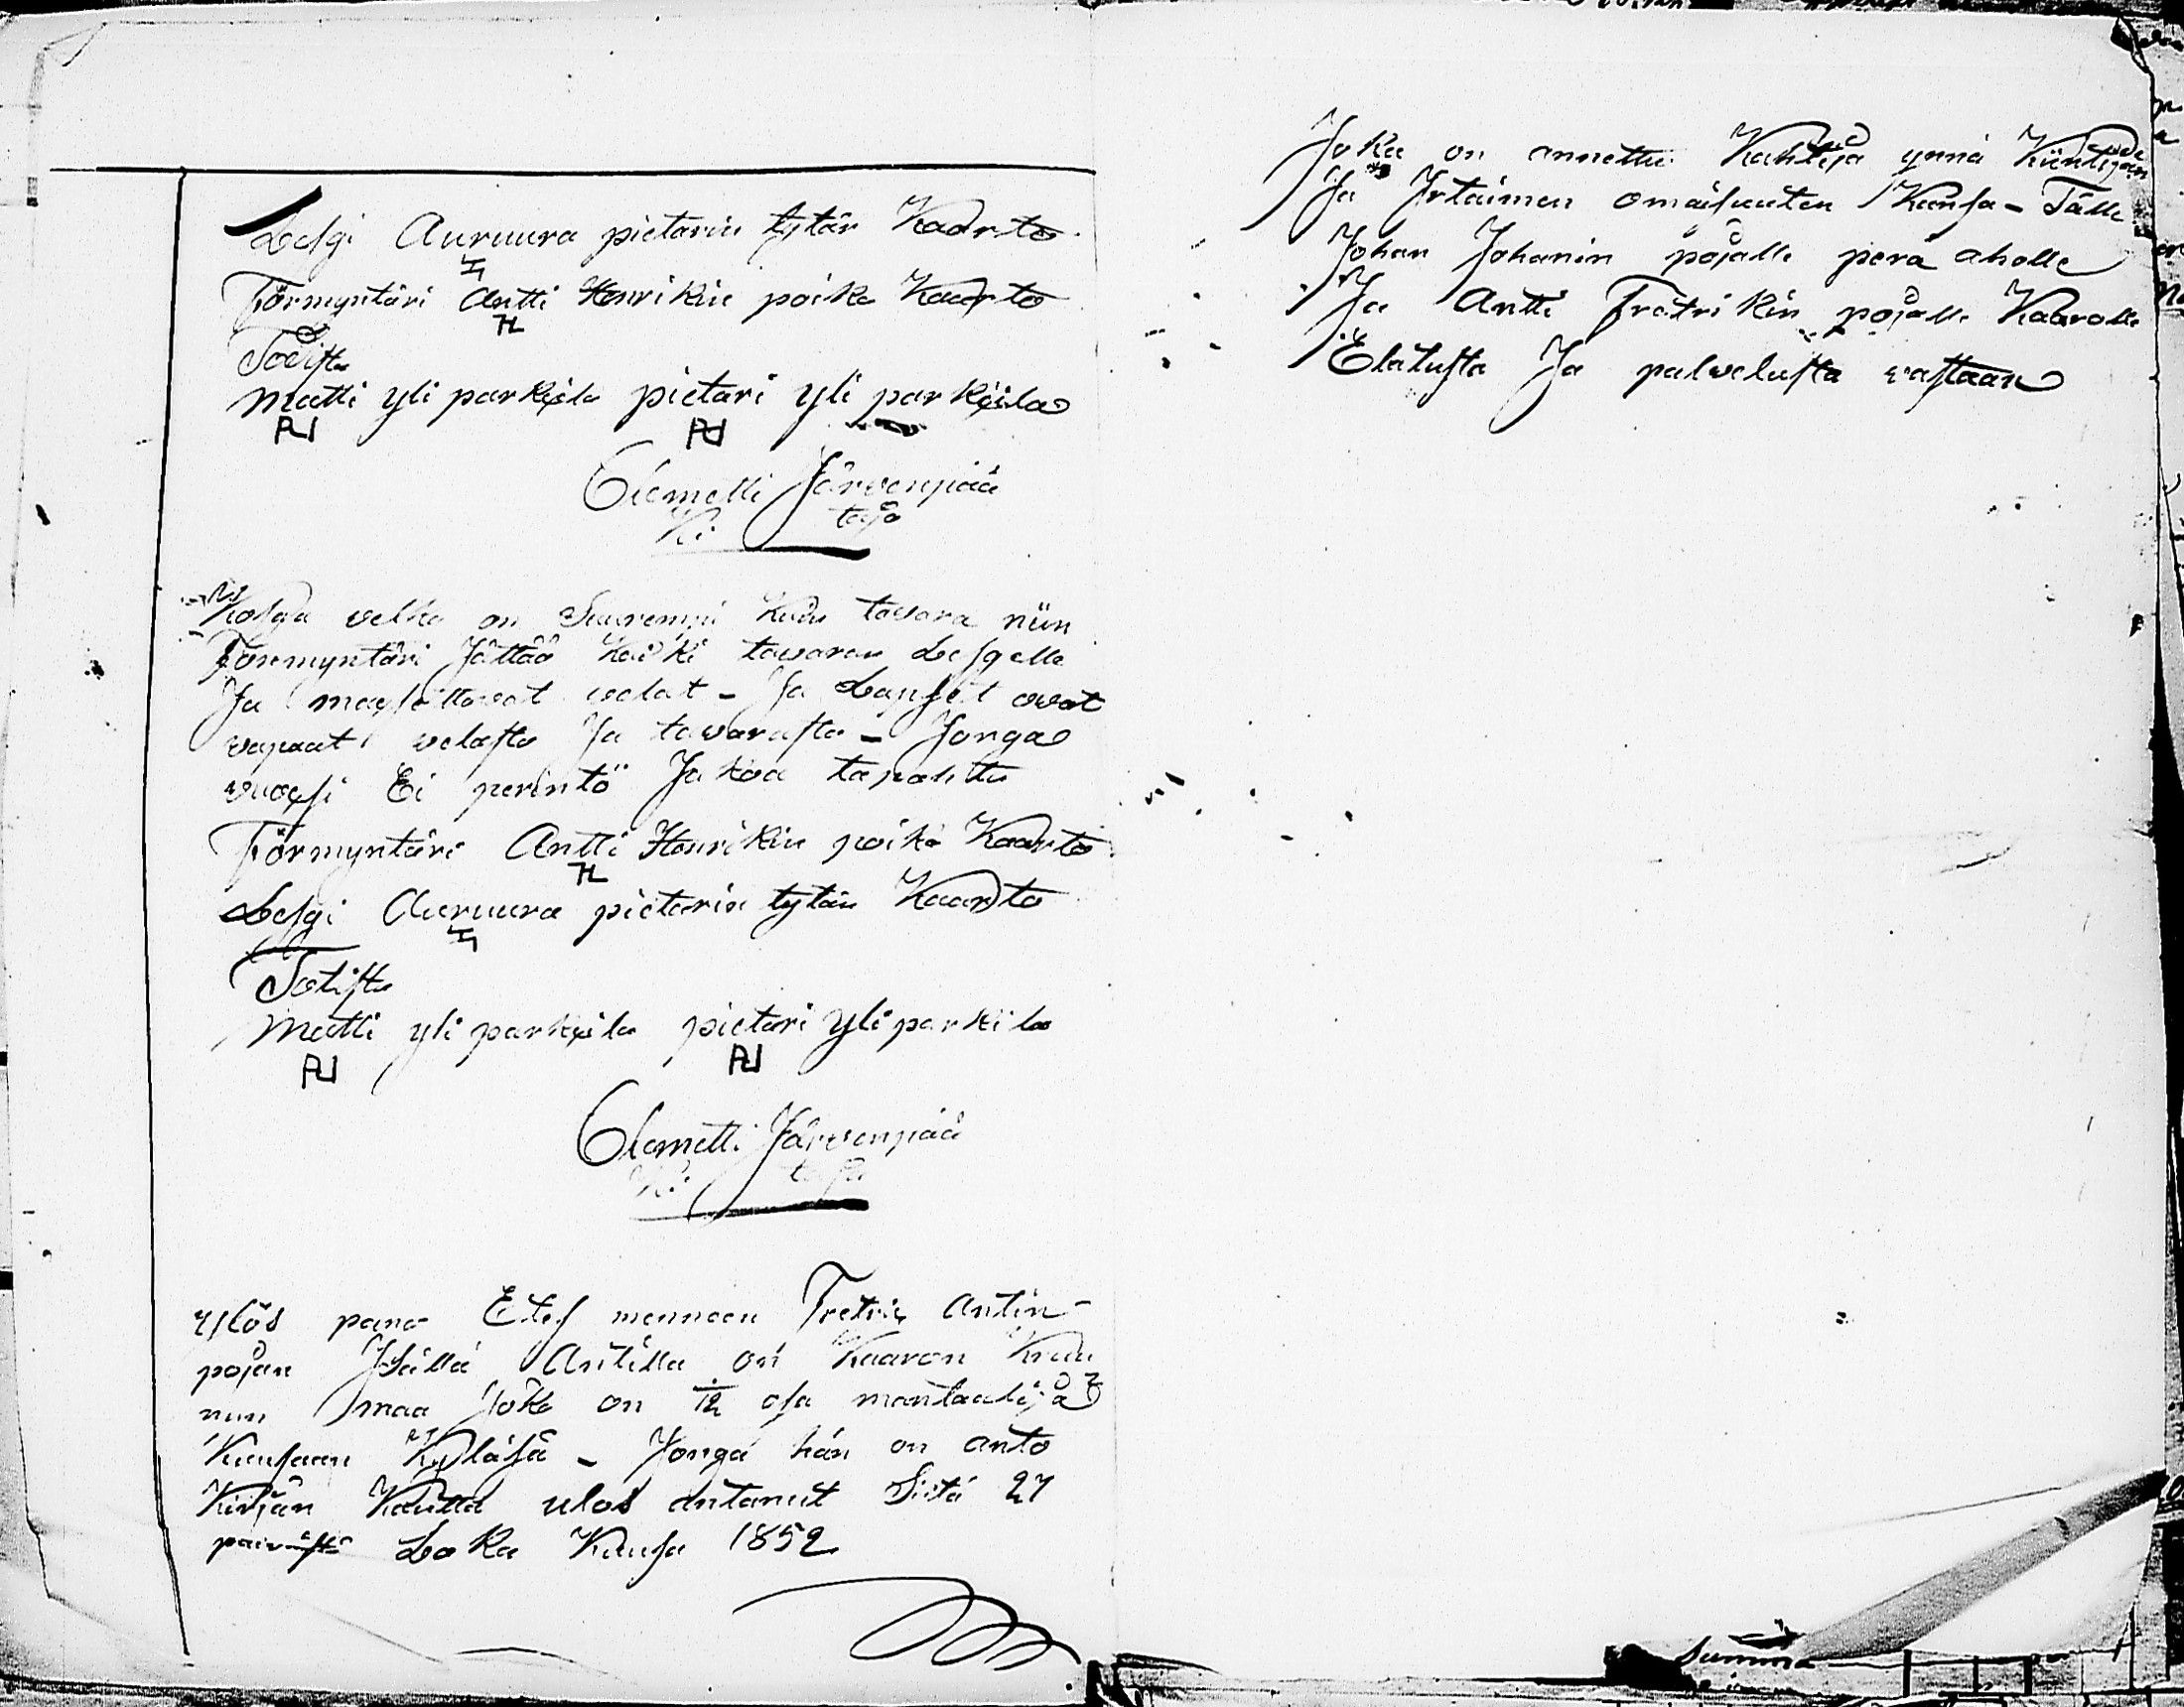 Lesgi Auruura pietarin tytär Kaarto
Förmyntäri Antti Henrikin poika Kaarto
Todista
Matti yli parkkila pietari yli parkkila
Clemetti Järwenpää
Ki taja
Kosga velka on Suurempi kuin tavara niin
Förmyntäri Jättää kaikki tavaran Lesgelle
Ja maxettavat velat - Ja Lapset ovat
vapaat velasta Ja tavarasta - Jonga
vuoxsi Ei perintö Jakoa tapahtu
Förmyntäri Antti Henrikin poika Kaarto
Lesgi Auruura pietarin tytär Kaarto
Totista
Matti yli parkkila pietari yli parkila
Clemetti Järwenpää
Ki taja
Ylös pano Etes menneen Fretrik Antin-
pojan Isällä Antilla on Kaaron Kruu
nun maa Joka on 1/12 osa mantaalija
Kiusaan Kyläsä - Jonga hän on anto
Kirjan Kautta ulos antanut Siitä 27
päivästä Loka Kuusa 1852
Joka on annettu Kahteja ynnä
Ja Irtaimen omaisuuten Kansa - Tälle
Johan Johanin pojalle perä aholle
Ja Antti Frätrikin pojalle Kaarolle
Elatusta Ja palvelusta vastaan
Summa